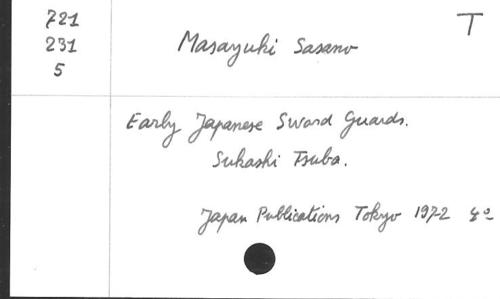 721
231
5
T
Masayuki Sasano
Early Japanese Sword Guards.
Sukashi Tsuba.
Japan Publications Tokyo 1972 4º